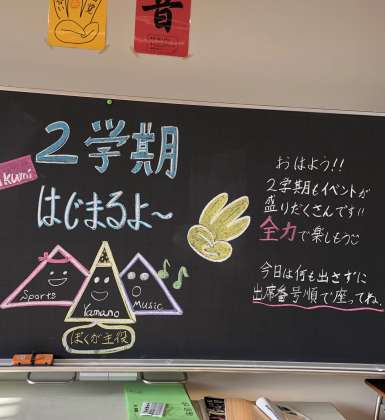 音
２学期
はじまるよ〜
kumi
Sports
Yamano
Music
ぼくが主役
おはよう!!
２学期もイベントが
盛りだくさんです!!
全力で楽しもう
今日は何も出さずに
出席番号順で座ってね.